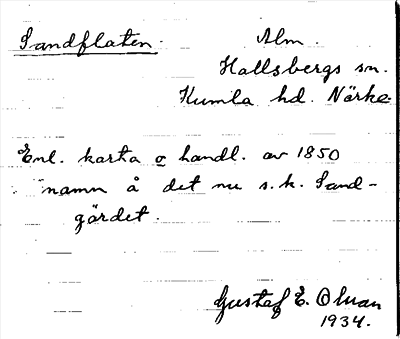 Sandflaten. Alm.
Hallsbergs sn.
Kumla hd. Närke.
Enl. karta o handl. av 1850
namn å det nu s.k. Sand-
gärdet.
Gustaf E. Olsson
1934.